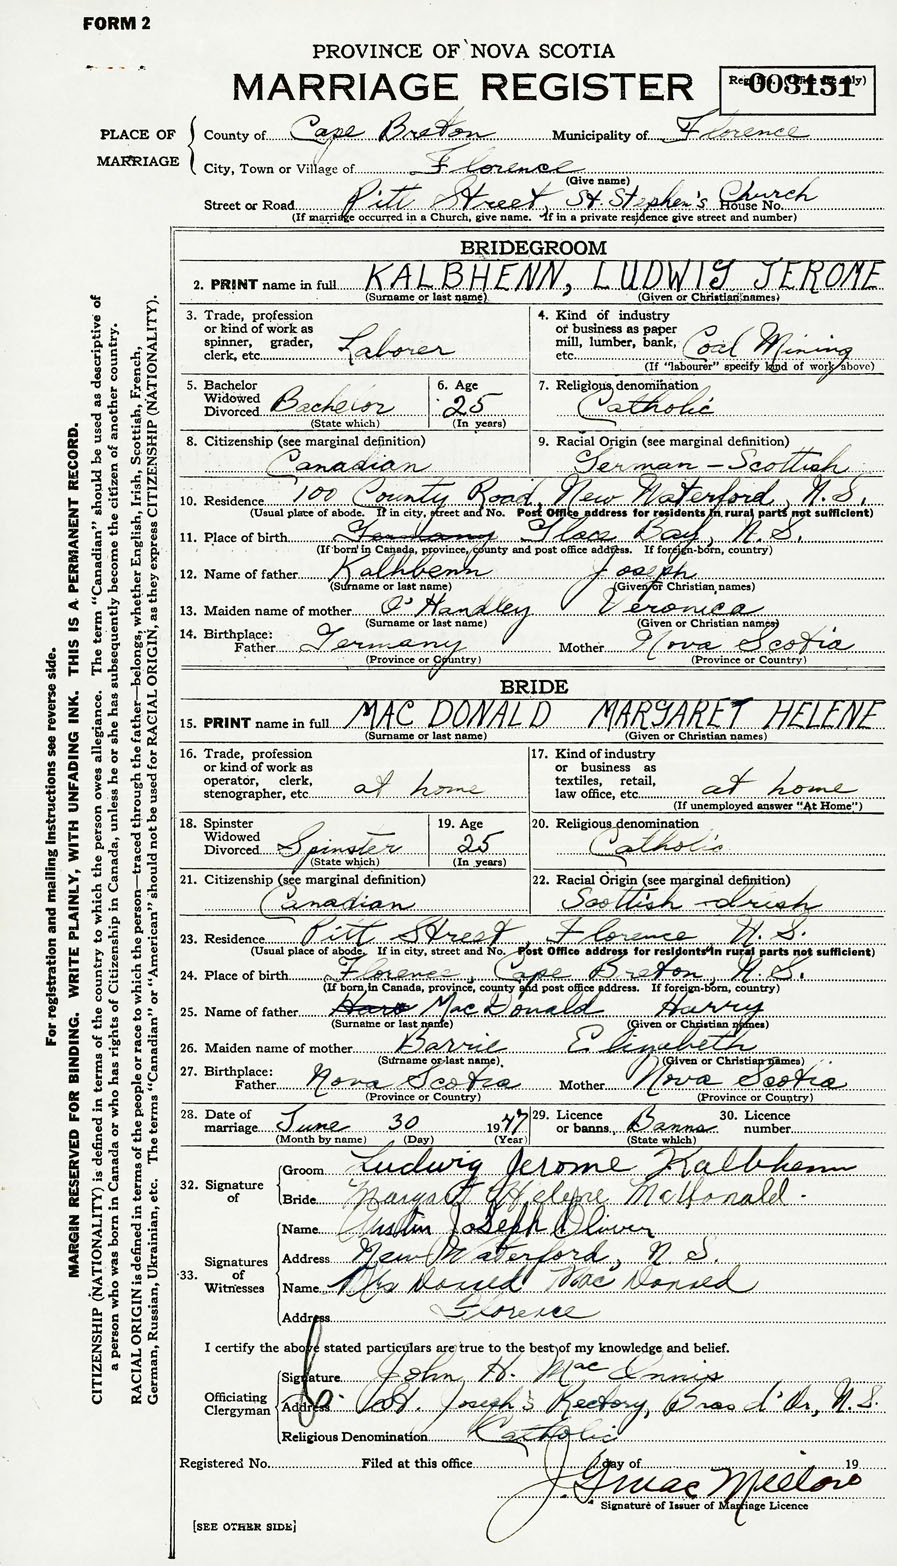 FORM 2
PROVINCE OF NOVA SCOTIA
MARRIAGE REGISTER
Reg. No. (Office use only)
003131
PLACE OF MARRIAGE
County of Cape Breton Municipality of Florence
City, Town or Village of Florence
(Give name)
Street or Road Pitt Street, St Stephen's Church House No.
(If marriage occurred in a Church, give name. If in a private residence give street and number)
BRIDEGROOM
2. PRINT name in full KALBHENN, LUDWIG JEROME
(Surname or last name) (Given or Christian names)
3. Trade, profession or kind of work as spinner, grader, clerk, etc. Laborer
4. Kind of industry or business as paper mill, lumber, bank, etc. Coal Mining
(If "labourer" specify kind of work above)
5. Bachelor Widowed Divorced Bachelor
(State which)
6. Age 25
(In years)
7. Religious denomination Catholic
8. Citizenship (see marginal definition) Canadian
9. Racial Origin (see marginal definition) German - Scottish
10. Residence 100 County Road, New Waterford, N.S.
(Usual place of abode. If in city, street and No. Post Office address for residents in rural parts not sufficient)
11. Place of birth Germany Glace Bay, N.S.
(If born in Canada, province, county and post office address. If foreign-born, country)
12. Name of father Kalbhenn Joseph
(Surname or last name) (Given or Christian names)
13. Maiden name of mother O'Handley Veronica
(Surname or last name) (Given or Christian names)
14. Birthplace: Father Germany Mother Nova Scotia
(Province or Country) (Province or Country)
BRIDE
15. PRINT name in full MAC DONALD MARGARET HELENE
(Surname or last name) (Given or Christian names)
16. Trade, profession or kind of work as operator, clerk, stenographer, etc. at home
17. Kind of industry or business as textiles, retail, law office, etc. at home
(If unemployed answer "At Home")
18. Spinster Widowed Divorced Spinster
(State which)
19. Age 25
(In years)
20. Religious denomination Catholic
21. Citizenship (see marginal definition) Canadian
22. Racial Origin (see marginal definition) Scottish - Irish
23. Residence Pitt Street Florence N.S.
(Usual place of abode. If in city, street and No. Post Office address for residents in rural parts not sufficient)
24. Place of birth Florence, Cape Breton, N.S.
(If born in Canada, province, county and post office address. If foreign-born, country)
25. Name of father MacDonald Harry
(Surname or last name) (Given or Christian names)
26. Maiden name of mother Barrie Elizabeth
(Surname or last name) (Given or Christian names)
27. Birthplace: Father Nova Scotia Mother Nova Scotia
(Province or Country) (Province or Country)
28. Date of marriage June 30 1947
(Month by name) (Day) (Year)
29. Licence or banns Banns
(State which)
30. Licence number
32. Signature of
Groom Ludwig Jerome Kalbhenn
Bride Margaret Helene McDonald
33. Signatures of Witnesses
Name Austin Joseph Oliver
Address New Waterford, N S.
Name Mrs Donald MacDonald
Address Florence
I certify the above stated particulars are true to the best of my knowledge and belief.
Officiating Clergyman
Signature John H. MacInnis
Address St. Joseph's Rectory, Bras d'Or, N.S.
Religious Denomination Catholic
Registered No. Filed at this office day of 19
Signature of Issuer of Marriage Licence
[SEE OTHER SIDE]
For registration and mailing instructions see reverse side.
MARGIN RESERVED FOR BINDING. WRITE PLAINLY, WITH UNFADING INK. THIS IS A PERMANENT RECORD.
CITIZENSHIP (NATIONALITY) is defined in terms of the country to which the person owes allegiance. The term "Canadian" should be used as descriptive of
a person who was born in Canada or who has rights of Citizenship in Canada, unless he or she has subsequently become the citizen of another country.
RACIAL ORIGIN is defined in terms of the people or race to which the person—traced through the father—belongs, whether English, Irish, Scottish, French,
German, Russian, Ukrainian, etc. The terms "Canadian" or "American" should not be used for RACIAL ORIGIN, as they express CITIZENSHIP (NATIONALITY).